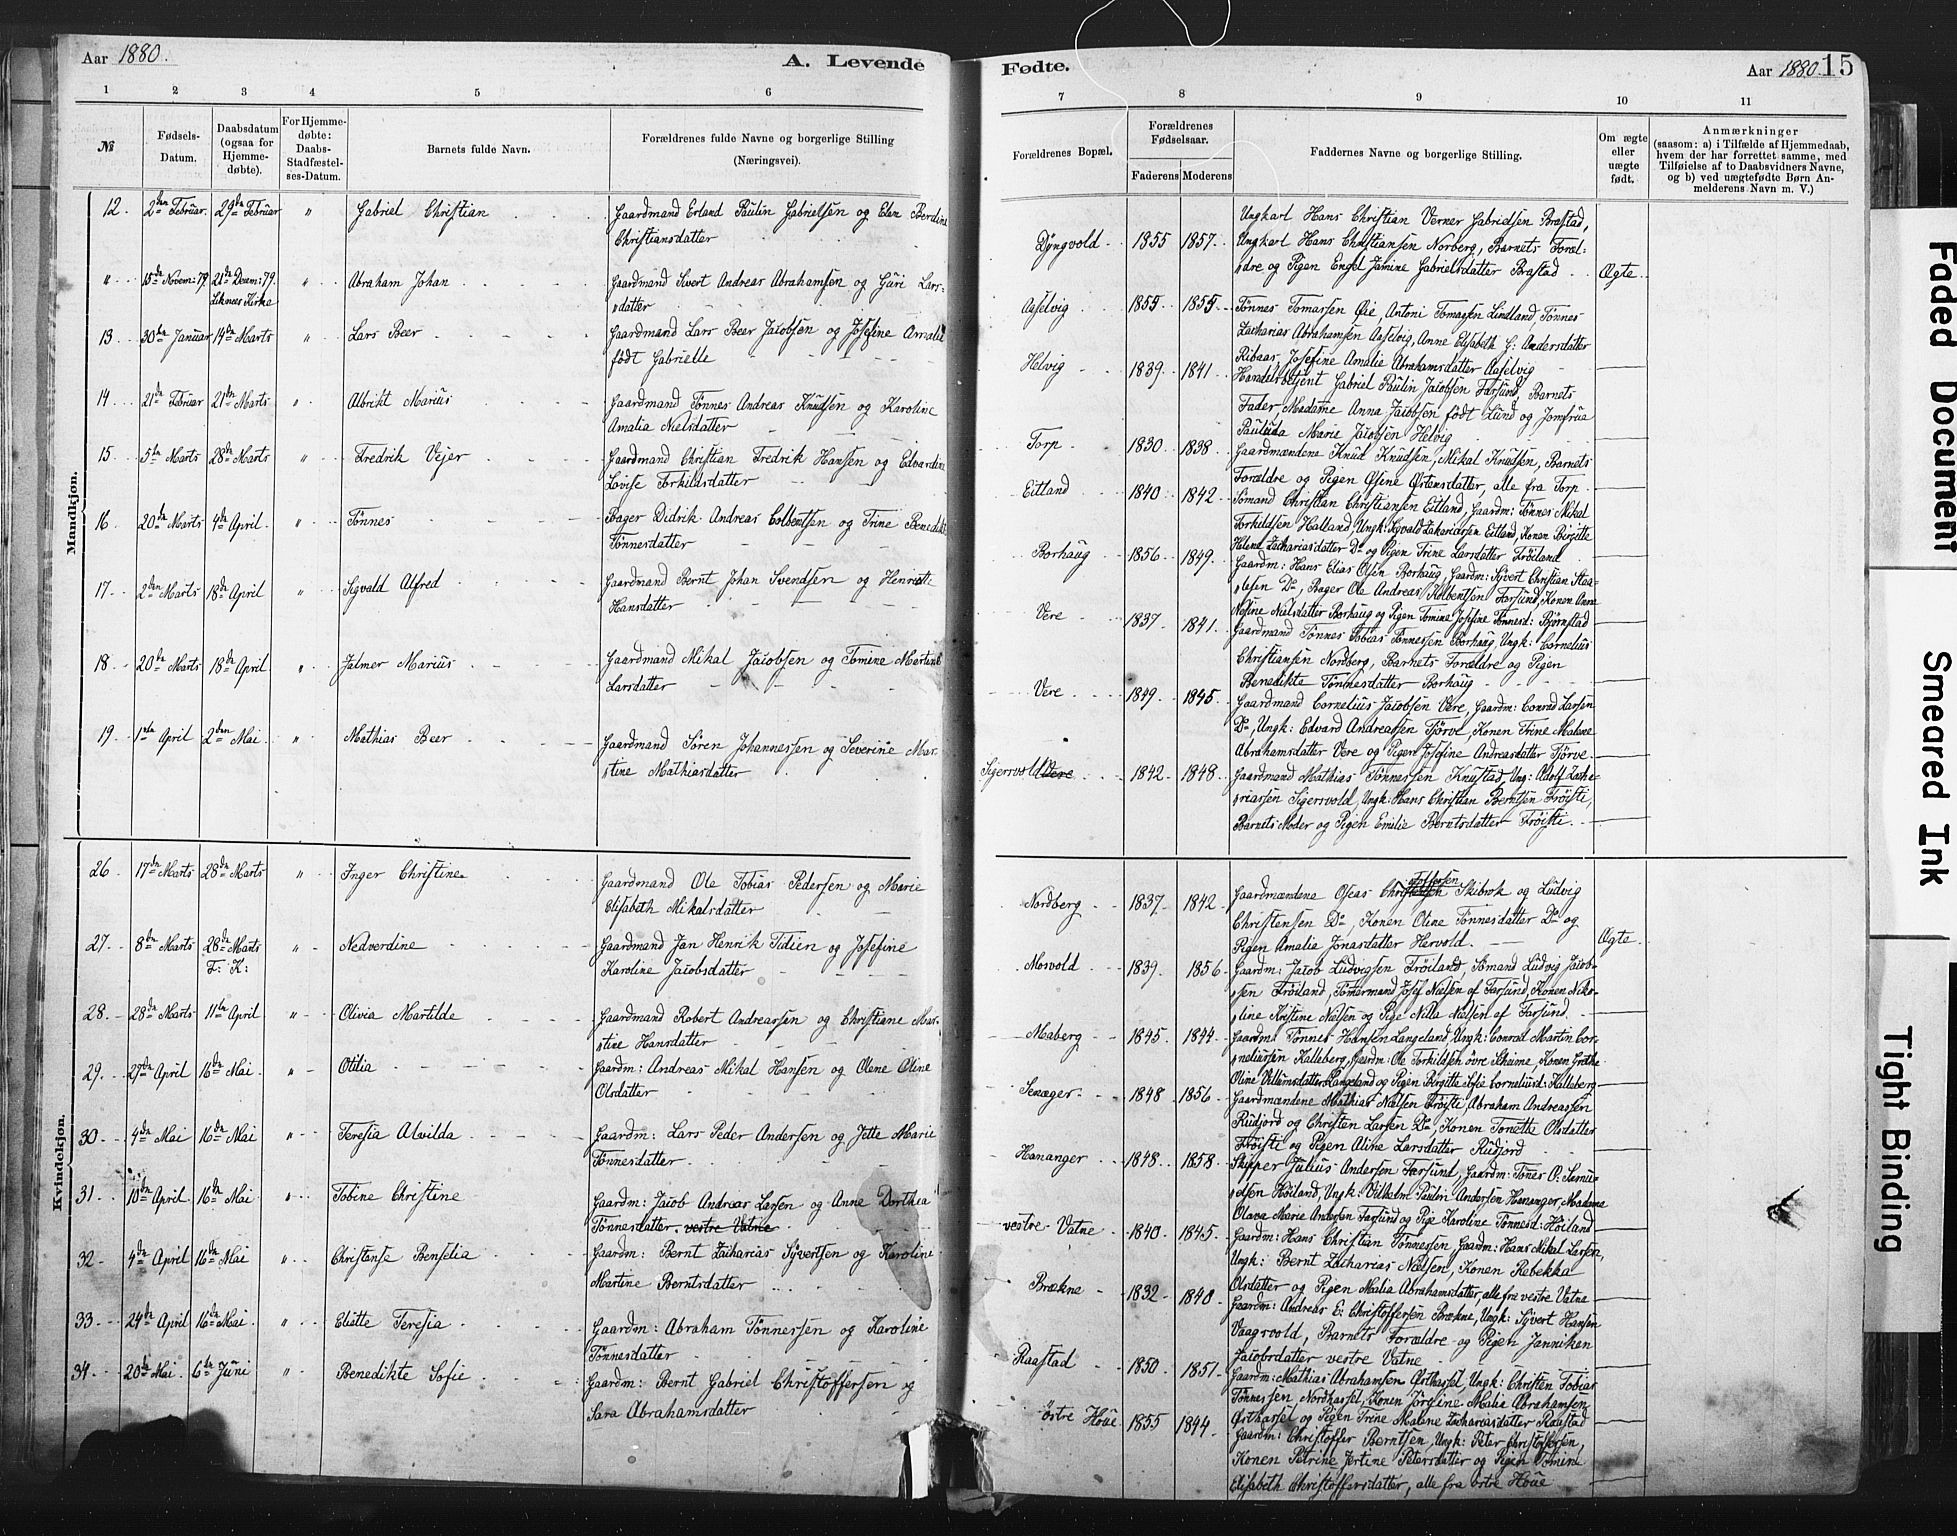 Aar 1880.
A. Levende
1 2 3 4 5 6
№
Fødsels-
Datum.
Daabsdatum
(ogsaa for
Hjemme-
døbte).
For Hjemme-
døbte:
Daabs-
Stadfæstel-
ses-Datum.
Barnets fulde Navn.
Forældrenes fulde Navne og borgerlige Stilling
(Næringsvei).
Mandkjøn.
12. 2den Februar. 29de Februar " Gabriel Christian Gaardmand Erland Paulin Gabrielsen og Elen Berdine
Christiansdatter
" 15de Novem: 79 21de Decem: 79. " Abraham Johan Gaardmand Sivert Andreas Abrahamsen og Guri Lars-
Liknes Kirke datter
13 30de Januar 14de Marts " Lars Beer Gaardmand Lars Beer Jacobsen og Josefine Amalie
født Gabrielle
14 21de Februar 21de Marts " Albrikt Marius Gaardmand Tønnes Andreas Knudsen og Karoline
Amalia Nielsdatter
15 5te Marts 28de Marts " Fredrik Vejer Gaardmand Christian Fredrik Hansen og Edvardine
Lovise Torkildsdatter
16. 20de Marts 4de April. " Tönnes Bager Didrik Andreas Colbentsen og Trine Benedikte
Tönnesdatter
17 2den Marts 18de April " Sigvald Alfred Gaardmand Bernt Johan Svendsen og Henriette
Hansdatter
18 20de Marts 18de April " Jalmer Marius Gaardmand Mikal Jacobsen og Tomine Martine
Larsdatter
19 1ste April 2den Mai " Mathias Beer Gaardmand Sören Johannessen og Severine Mar-
tine Mathiasdatter
Kvindekjøn.
26 17de Marts 28de Marts " Inger Christine Gaardmand Ole Tobias Pedersen og Marie
Elisabeth Mikalsdatter
27. 8de Marts 28de Marts " Nedverdine Gaardmand Jan Henrik Tidien og Josefine
F: K: Karoline Jacobsdatter
28. 28de Marts 11te April " Olivia Martilde Gaardmand Robert Andreassen og Christiane Mar-
tine Hansdatter
29. 29de April 16de Mai " Otilia Gaardm: Andreas Mikal Hansen og Olene Oline
Olsdatter
30 4de Mai 16de Mai " Teresia Alvilda Gaardm: Lars Peder Andersen og Jette Marie
Tönnesdatter
31 10de April 16de Mai " Tobine Christine Gaardm: Jacob Andreas Larsen og Anne Dorthea
Tönnesdatter vestre Vatne
32 4de April 16de Mai " Christense Benselia Gaardm: Bernt Zacharias Syvertsen og Karoline
Martine Berntsdatter
33 24de April 16de Mai " Eliette Teresia Gaardm: Abraham Tönnessen og Karoline
Tönnesdatter
34 20de Mai. 6te Juni " Benedikte Sofie Gaardm: Bernt Gabriel Christoffersen og
Sara Abrahamsdatter
Fødte.
Aar 1880. 15
7 8 9 10 11
Forældrenes Bopæl.
Forældrenes
Fødselsaar.
Faderens Moderens
Faddernes Navne og borgerlige Stilling.
Om ægte
eller
uægte
født.
Anmærkninger
(saasom: a) i Tilfælde af Hjemmedaab,
hvem der har forrettet samme, med
Tilføielse af to Daabsvidners Navne,
og b) ved uægtefødte Børn An-
melderens Navn m. V.)
Ungkarl Hans Christian Verner Gabrielsen Brastad,
Dyngvold 1855 1857. Ungkarl Hans Christiansen Norberg, Barnets Foræl-
dre og Pigen Engel Jamine Gabrielsdatter Brastad Ægte.
Aaselvig 1855 1855 Tönnes Tomassen Öie Antoni Tomassen Lindland, Tönnes
Zacharias Abrahamsen Aaselvig, Anne Elisabeth C: Andersdatter
Ribaas, Josefine Amalie Abrahamsdatter Aaselvig
Helvig 1839. 1841 Handelsbetjent Gabriel Paulin Jacobsen Farsund, Barnets
Fader, Madame Anna Jacobsen født Lund og Jomfrua
Paulida Marie Jacobsen Helvig
Torp 1830 1838 Gaardmændene Knud Knudsen, Mikal Knudsen, Barnets
Forældre og Pigen Osine Östensdatter, alle fra Torp
Eitland 1840 1842 Sömand Christian Christiansen Eitland, Gaardm: Tönnes Mikal
Torkildsen Halland, Ungk: Sigvald Zakariassen Eitland, Konen Birgitte
Helene Zachariasdatter Do og Pigen Trine Larsdatter Fröiland
Borhaug 1856 1849. Gaardm: Hans Elias Olsen Borhaug, Gaardm: Syvert Christian Staa-
lesen Do, Bager Ole Andreas Kolbentsen Farsund, Konen Anne
Nesine Nielsdatter Borhaug og Pigen Tomine Josefine Tönnesd: Bjørnstad
Vere 1837. 1841. Gaardmand Tönnes Tobias Tönnessen Borhaug, Ungk: Cornelius
Christiansen Nordberg, Barnets Forældre og Pigen
Benedikte Tönnesdatter Borhaug
Vere 1849. 1845. Gaardmand Cornelius Jacobsen Vere, Gaardm: Conrad Larsen
Do, Ungk: Edvard Andreassen Tjörve, Konen Trine Malene
Abrahamsdatter Vere og Pigen Josefine Andreasdatter Tjörve.
Sigersvold Vere 1842 1848 Gaardmand Mathias Tönnessen Knustad, Ung: Adolf Zache-
riassen Sigersvold, Ungk: Hans Christian Berntsen Fröisti,
Barnets Moder og Pigen Emilie Berntsdatter Fröisti.
Toffersen
Nordberg 1837. 1842 Gaardmændene Oseas Christensen Skibrok og Ludvig
Christensen Do, Konen Oline Tönnesdatter Do og
Pigen Amalia Jonasdatter Hervold. Ægte.
Mosvold 1839. 1856 Gaardm: Jacob Ludvigsen Fröiland, Sömand Ludvig Jacob-
sen Fröiland, Tömermand Josef Nielsen af Farsund, Konen Niko-
line Kristine Nielsen og Pige Nilla Nielsen af Farsund.
Maberg 1845 1844 Gaardm: Tönnes Hansen Langeland, Ungk: Conrad Martin Cor-
neliussen Kalleberg, Gaardm: Ole Torkildsen övre Skeime, Konen Grethe
Oline Villumsdatter Langeland og Pigen Birgitte Sofie Corneliusd: Kalleberg
Seræger 1848 1856 Gaardmændene Mathias Nielsen Fröisti, Abraham Andreassen
Rudjord og Christen Larsen Do, Konen Tonette Olsdatter
Fröisti og Pigen Aline Larsdatter Rudjord
Hananger 1848. 1858. Skipper Julius Andersen Farsund, Gaardm: Tönes O: Samu-
elsen Höiland, Ungk: Vilhelm Paulin Andersen Hananger, Madame
Olava Marie Andersen Farsund og Pige Karoline Tönnesd: Höiland
vestre Vatne 1840 1845. Gaardm: Hans Christian Tönnessen, Gaardm: Hans Mikal Larsen,
Ungk: Bernt Zacharias Nielsen, Konen Rebekka
Olsdatter og Pigen Malia Abrahamsdatter, alle fra vestre Vatne
Brækne 1832 1840. Gaardm: Andreas E: Christoffersen Brækne, Ungk: Syvert Hansen
Vaagsvold, Barnets Forældre og Pigen Janniken
Jacobsdatter vestre Vatne
Raastad 1850 1851 Gaardm: Mathias Abrahamsen Østhassel, Ungk: Christen Tobias
Tönnessen Nordhassel, Konen Jörgine Malia Abrahamsen
Østhassel og Pigen Trine Malene Zachariasdatter Raastad
östre Höue 1855 1844. Gaardm: Christoffer Berntsen, Ungk: Peter Christoffersen,
Konen Petrine Jertine Petersdatter og Pigen Tomine
Elisabeth Christoffersdatter, alle fra östre Höue
Faded Document
Smeared Ink
Tight Binding